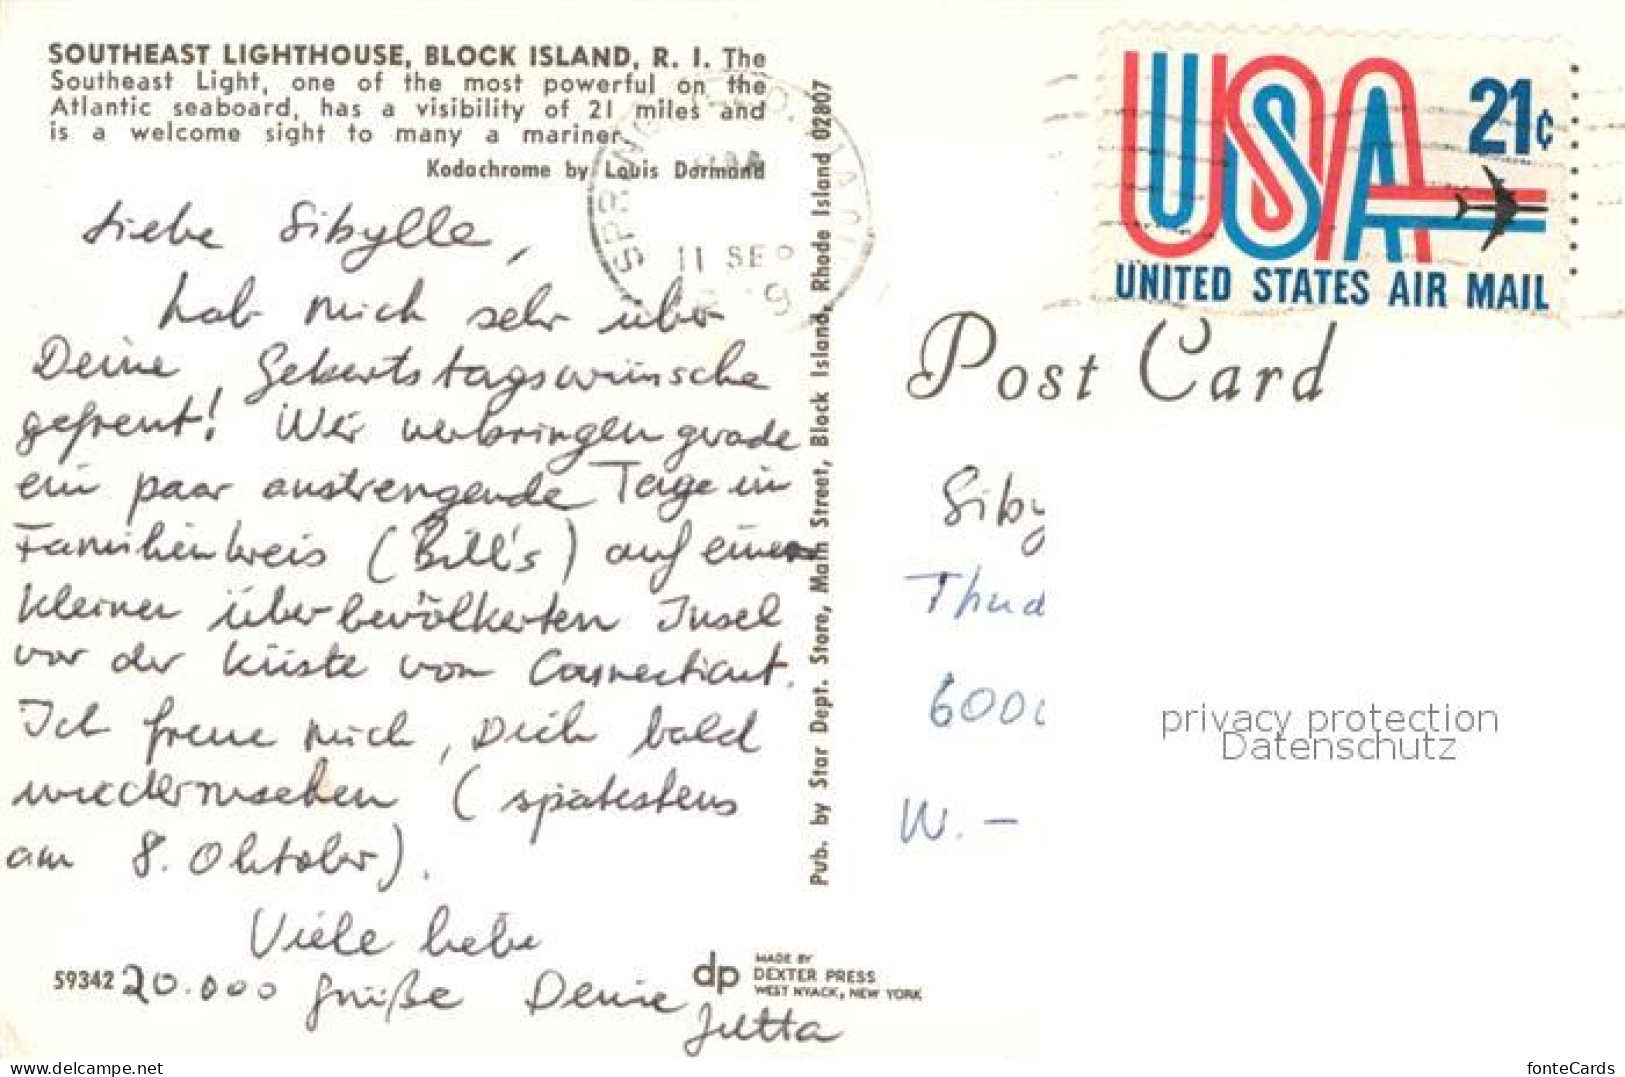 SOUTHEAST LIGHTHOUSE, BLOCK ISLAND, R. I. The
Southeast Light, one of the most powerful on the
Atlantic seaboard, has a visibility of 21 miles and
is a welcome sight to many a mariner.
Kodachrome by Louis Dormand
Liebe Sibylle,
hab mich sehr über
Deine Geburtstagswünsche
gefreut! Wir verbringen grade
ein paar anstrengende Tage im
Familienkreis (Bill's) auf einer
kleinen überbevölkerten Insel
vor der Küste von Connecticut.
Ich freue mich, Dich bald
wiederzusehen (spätestens
am 8. Oktober).
Viele liebe
20.000 Grüße Deine
Jutta
59342
dp
MADE BY
DEXTER PRESS
WEST NYACK, NEW YORK
Pub. by Star Dept. Store, Main Street, Block Island, Rhode Island 02807
11 SEP
USA
21¢
UNITED STATES AIR MAIL
Post Card
Siby
Thud
6000
W. -
privacy protection
Datenschutz
www.delcampe.net
fonteCards